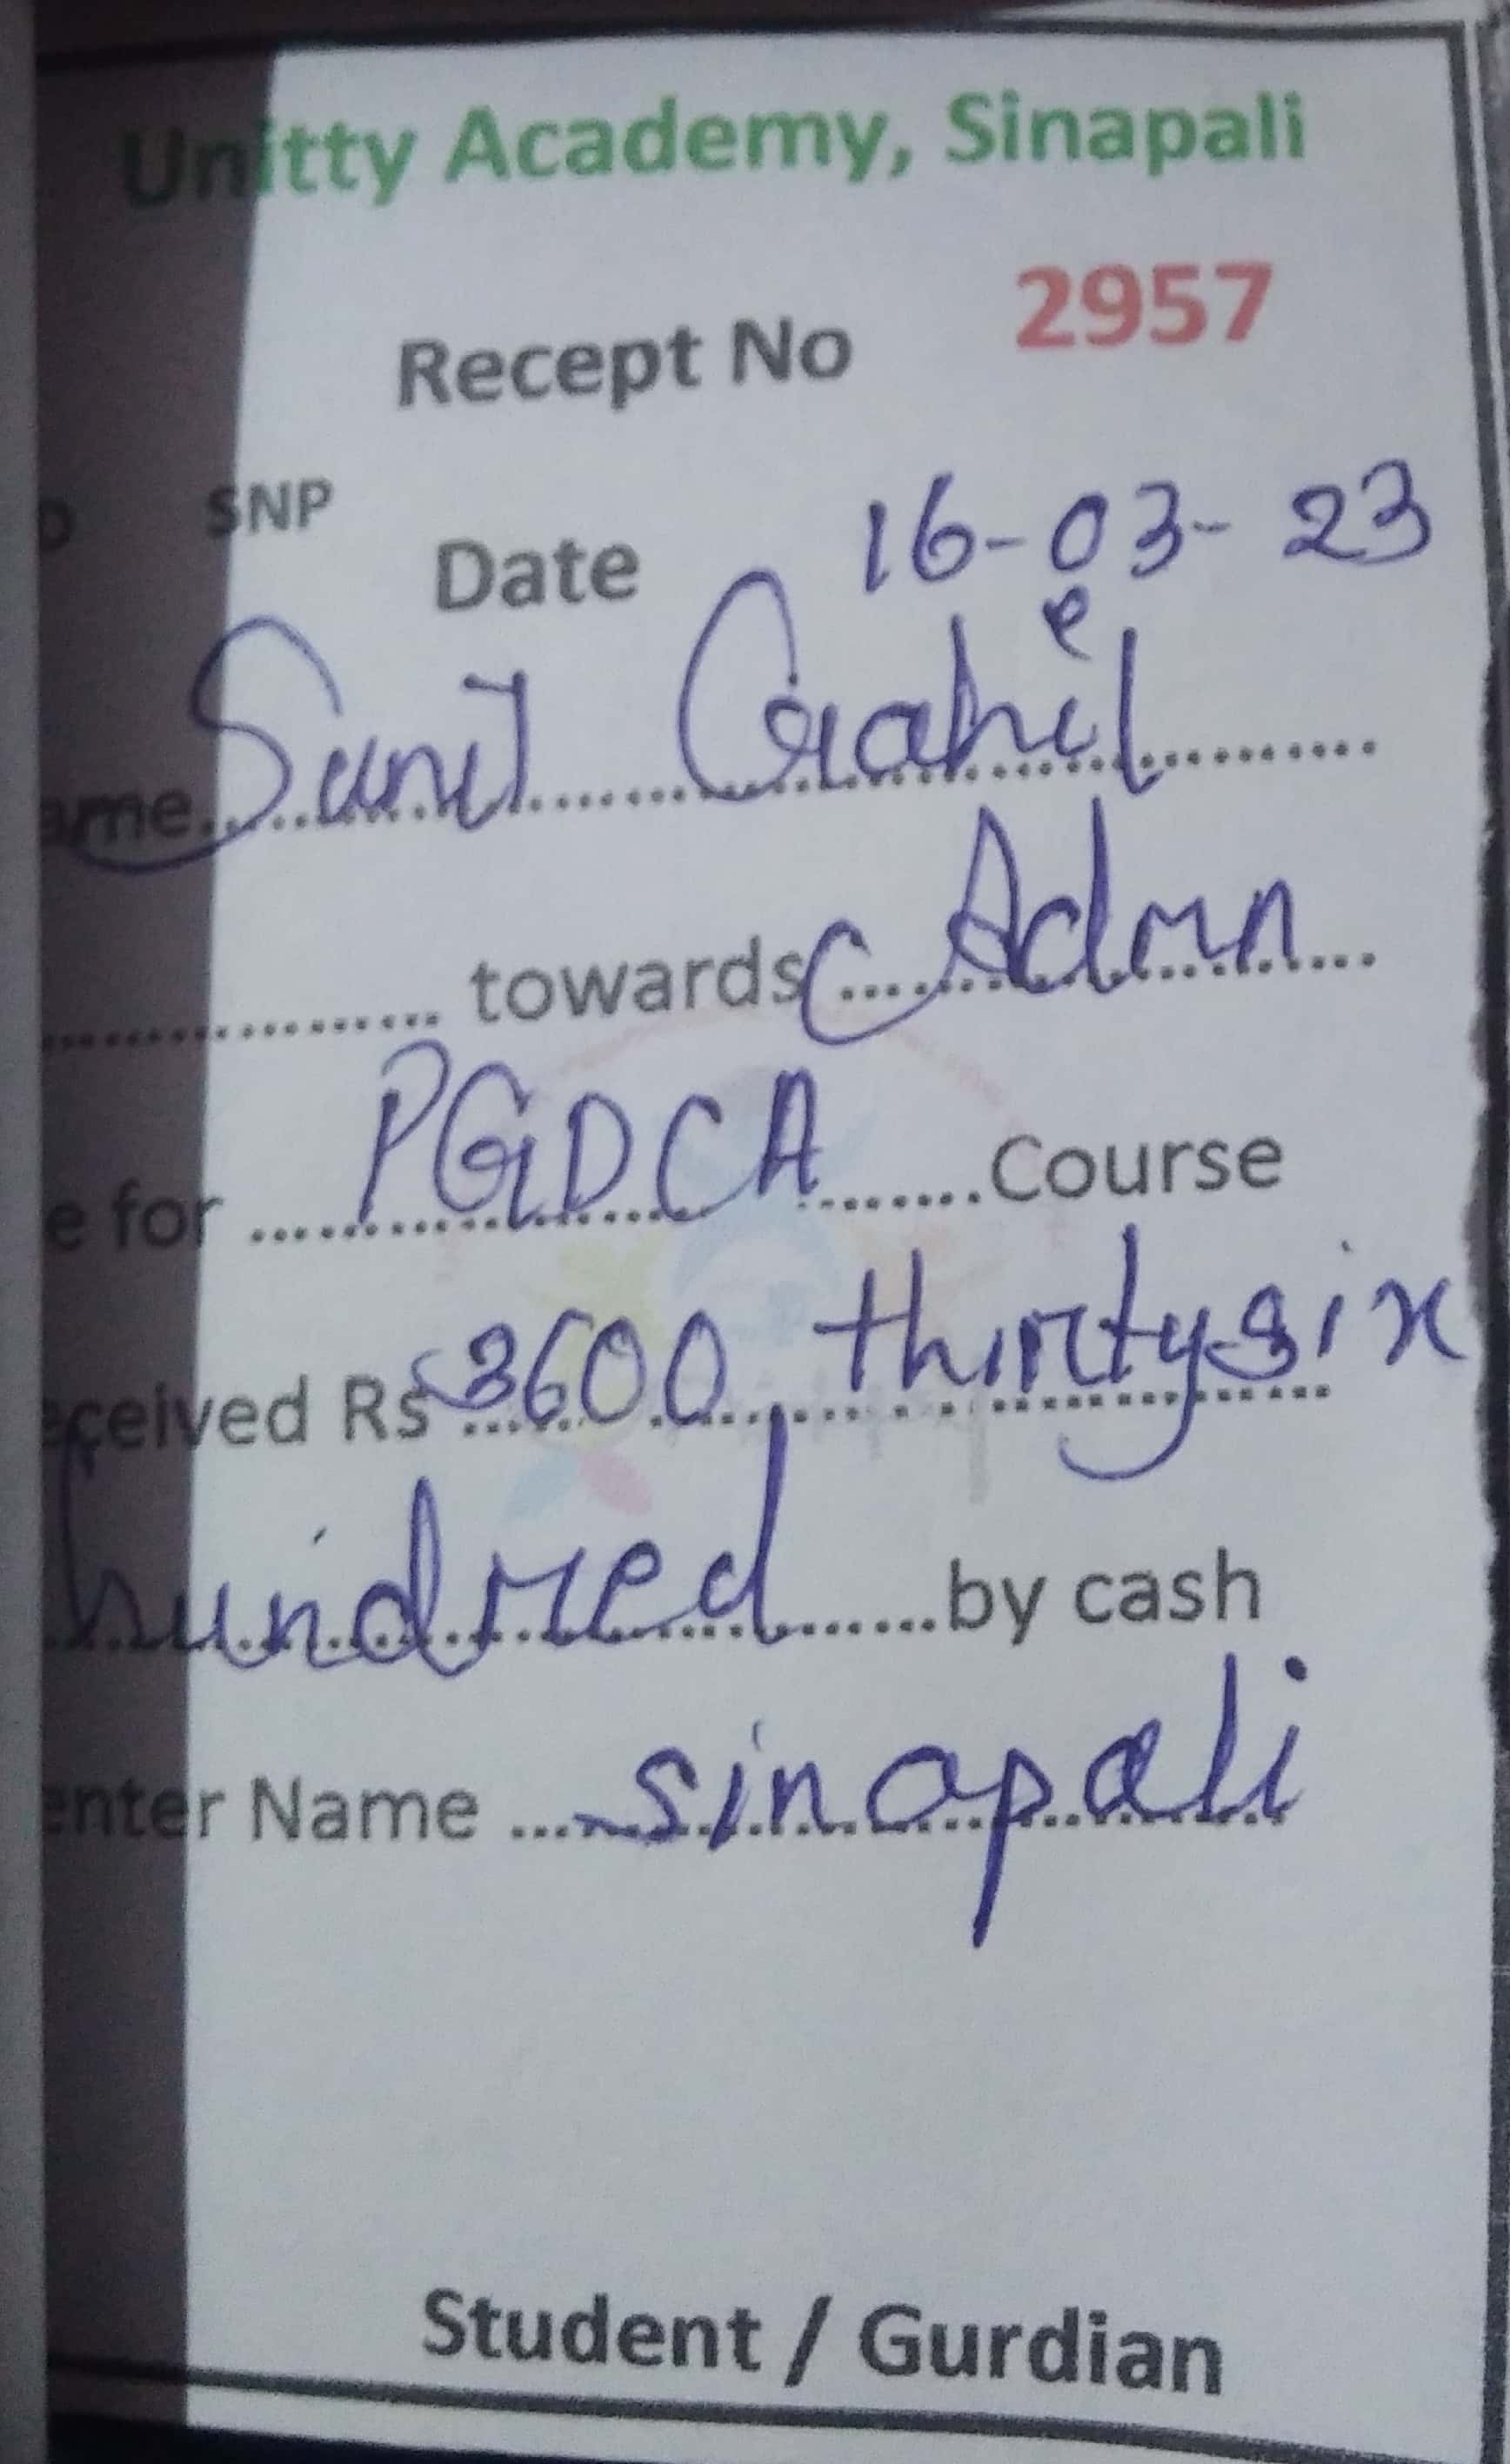 Unitty Academy, Sinapali
Recept No 2957
SNP
Date 16-03-23
ame Sunil Gahil
towards Admn
e for PGDCA Course
eceived Rs 3600 thirtysix
hundred by cash
enter Name sinapali
Student / Gurdian